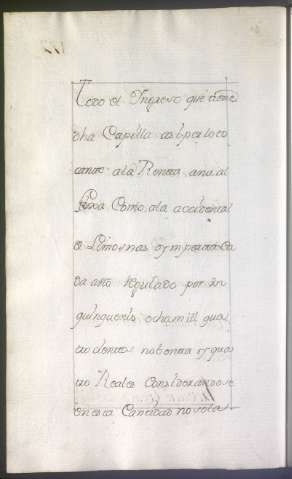 Todo el Ingreso que tiene
dha Capilla asi por lo to
cante a la Renta anual
fixa Como, a la accidental
de Limosnas &ymporta ca
da año regulado por un
quinquenio ocho mill qua
trocientos nobenta y qua
tro Reales Considerandose
en esta Cantidad no solo